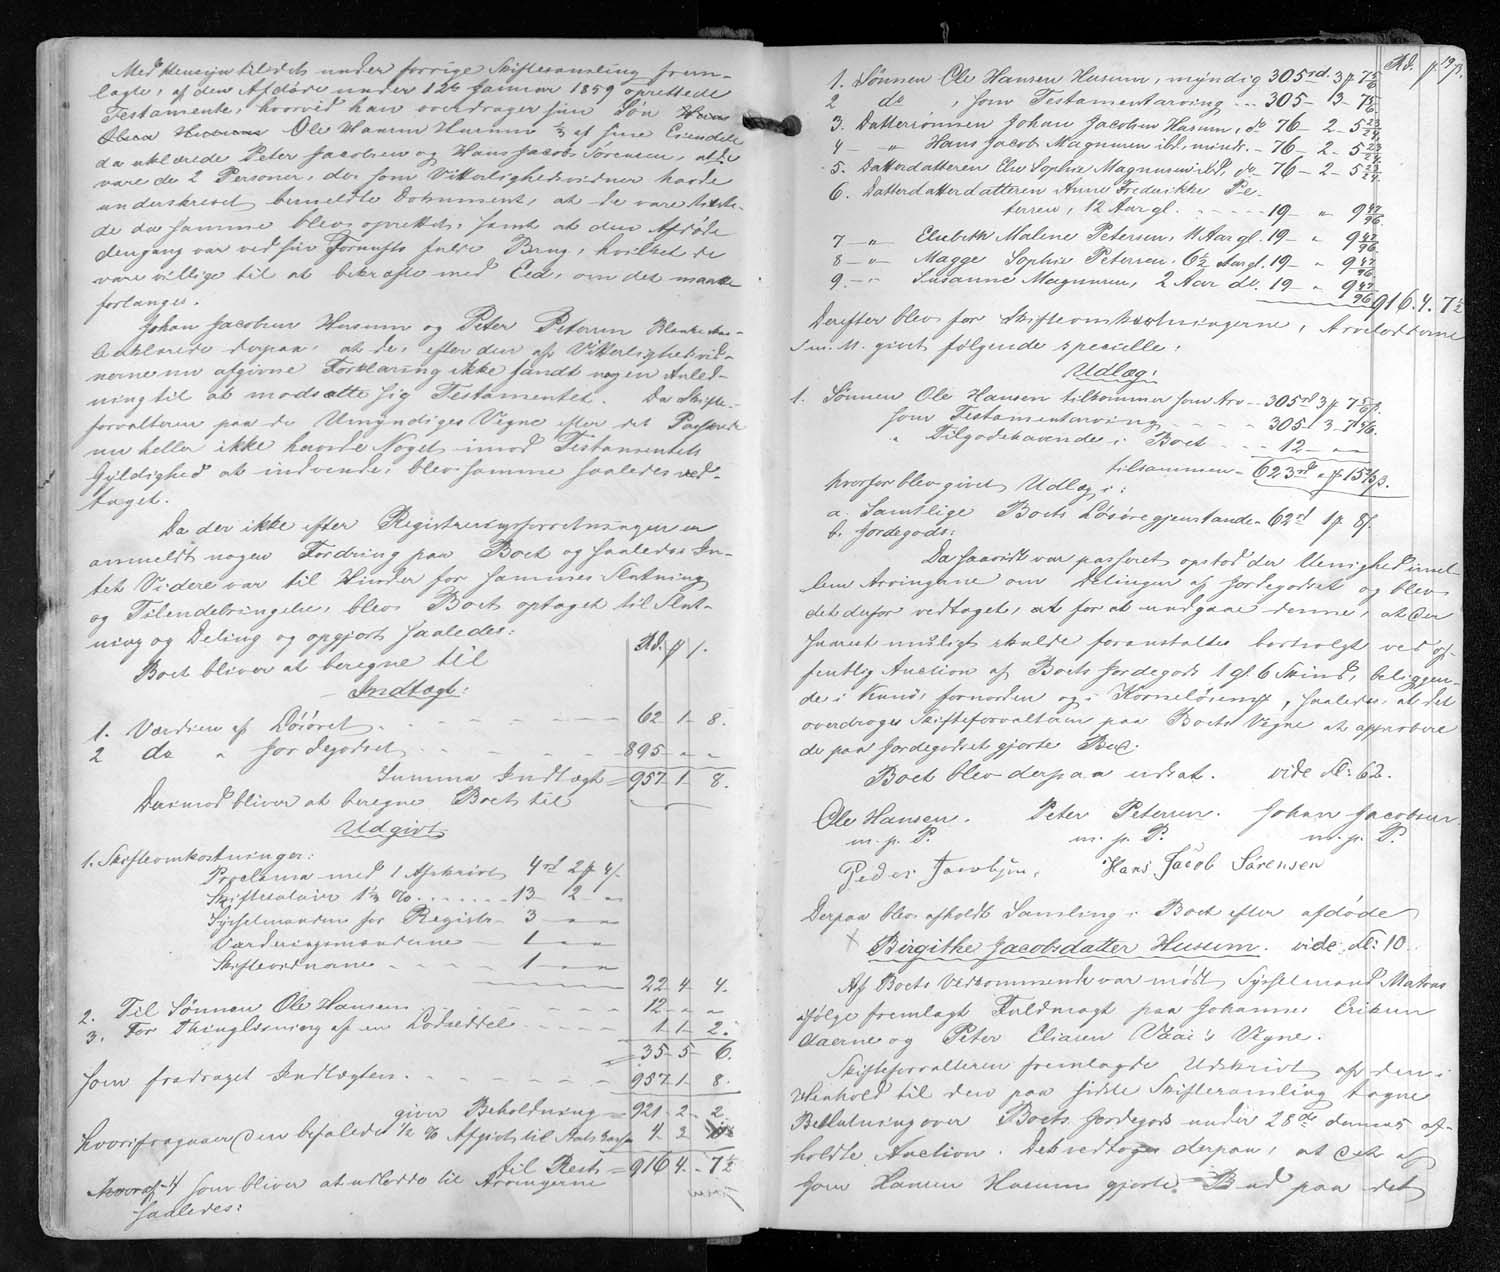 Med Hensyn til det under forrige Skiftesamling frem-
lagte, af den Afdøde under 12te Januar 1859 oprettede
Testamente, hvorved han overdrager sin Søn
Ole Hansen Husum 1/3 af sine Eiendele
da erklærede Peter Jacobsen og Hans Jacob Sørensen, at de
vare de 2 Personer, der som Vitterlighedsvidner havde
underskrevet bemeldte Dokument, at de vare tilstæ-
de da samme blev oprettet, samt at den Afdøde
dengang var ved sin Fornufts fulde Brug, hvilket de
vare villige til at bekræfte med Eed, om det maatte
forlanges.
Johan Jacobsen Husum og Peter Petersen
erklærede derpaa, at de, efter den af Vitterlighedsvid-
nerne nu afgivne Forklaring ikke fandt nogen Anled-
ning til at modsætte sig Testamentet. Da Skifte-
forvalteren paa de Umyndiges Vegne efter det Passerede
nu heller ikke havde Noget imod Testamentets
Gyldighed at indvende, blev samme saaledes ved-
taget.
Da der ikke efter Registreringsforretningen er
anmeldt nogen Fordring paa Boet og saaledes In-
tet Videre var til Hinder for sammes Slutning
og Tilendebringelse, blev Boet optaget til Slut-
ning og Deling og opgjort saaledes:
Boet bliver at beregne til Rd. ƒ s.
Indtægt:
1. Værdien af Løsøret 62 - 1 - 8.
2 do " Jordegodset 895 - " - "
Summa Indtægt = 957 - 1 - 8.
Derimod bliver at beregne Boet til
Udgivt
1. Skifteomkostninger:
Proclama med 1 Afskrivt 4rd 2ƒ 4s.
Skiftesalair 1 1/3 % 13 - 2 - "
Sysselmanden for Registr. 3 - " - "
Vurderingsmændene 1 - " - "
Skiftevidnerne 1 - " - "
22 - 4 - 4.
2. Til Sønnen Ole Hansen 12 - " - "
3. For Thinglæsning af en Lodseddel 1 - 1 - 2.
35 - 5 - 6.
som fradraget Indtægten 957 - 1 - 8.
giver Beholdning = 921 - 2 - 2.
hvorifra gaaer den befalede 1/2 % Afgivt til Stats
til Rest = 916 4. - 7 1/2
som bliver at udlodde til Arvingerne
saaledes:
Rd. ƒ s.
1. Sønnen Ole Hansen Husum, myndig 305rd. 3ƒ 7 5/6
2 do , som Testamentarving 305 - 3 - 7 5/6
3. Dattersønnen Johan Jacobsen Husum, do 76 - 2 - 5 23/24
4 - " Hans Jacob Magnusen ibd, mind. - 76 - 2 - 5 23/24
5. Datterdatteren Else Sophie Magnusen ibd, do 76 - 2 - 5 23/24
6. Datterdatterdatteren Anne Frederikke Pe-
tersen, 12 Aar gl. 19 - " 9 47/96
7 - " Elsebeth Malene Petersen, 11 Aar gl. 19 - " 9 47/96
8 - " Magge Sophie Petersen, 6 1/2 Aar gl. 19 - " 9 47/96
9. - " Susanne Magnusen, 2 Aar do. 19 " 9 47/96
916. 4. 7 1/2
Derefter blev for Skifteomkostningerne, Arvelodderne
m. M. givet følgende specielle:
Udlæg:
1. Sønnen Ole Hansen tilkommer som Arv 305rd 3ƒ 7 5/6s.
som Testamentarving 305. 3 - 7 5/6.
" Tilgodehavende i Boet 12 - " - "
tilsammen 623rd " ƒ 15 2/3 s.
hvorfor blev givet Udlæg i:
a. Samtlige Boets Løsøregjenstande 62rd 1ƒ 8s.
b. Jordegods:
Da saavidt var passeret opstod der Uenighed imel-
lem Arvingerne om Delingen af Jordegodset og blev
det derfor vedtaget, at for at undgaae denne, at der
snarest muligt skulde foranstaltes bortsolgt ved of-
fentlig Auction af Boets Jordegods 1 gl 6 Skind, beliggen-
de i Kunø, fornorden og i , saaledes at det
overdroges Skifteforvalteren paa Boets Vegne at approbere
de paa Jordegodset gjorte Bud.
Boet blev derpaa udsat. vide fl: 62.
Ole Hansen. Peter Petersen. Johan Jacobsen
m. p. P. m. p. P. m. p. P.
Peder Jacobsen, Hans Jacob Sørensen
Derpaa blev afholdt Samling i Boet efter afdøde
Birgithe Jacobsdatter Husum. vide fl: 10.
Af Boets Vedkommende var mødt Sysselmand Matras
ifølge fremlagt Fuldmagt paa Johannes Eriksen
Gaerne og Peter Eliasen Vaai's Vegne.
Skifteforvalteren fremlagde Udskrivt af den i
Henhold til den paa sidste Skiftesamling tagne
Beslutning over Boets Jordegods under 28de dennes af-
holdte Auction. Det vedtoges derpaa, at det af
Hansen Husum gjorte Bud paa det